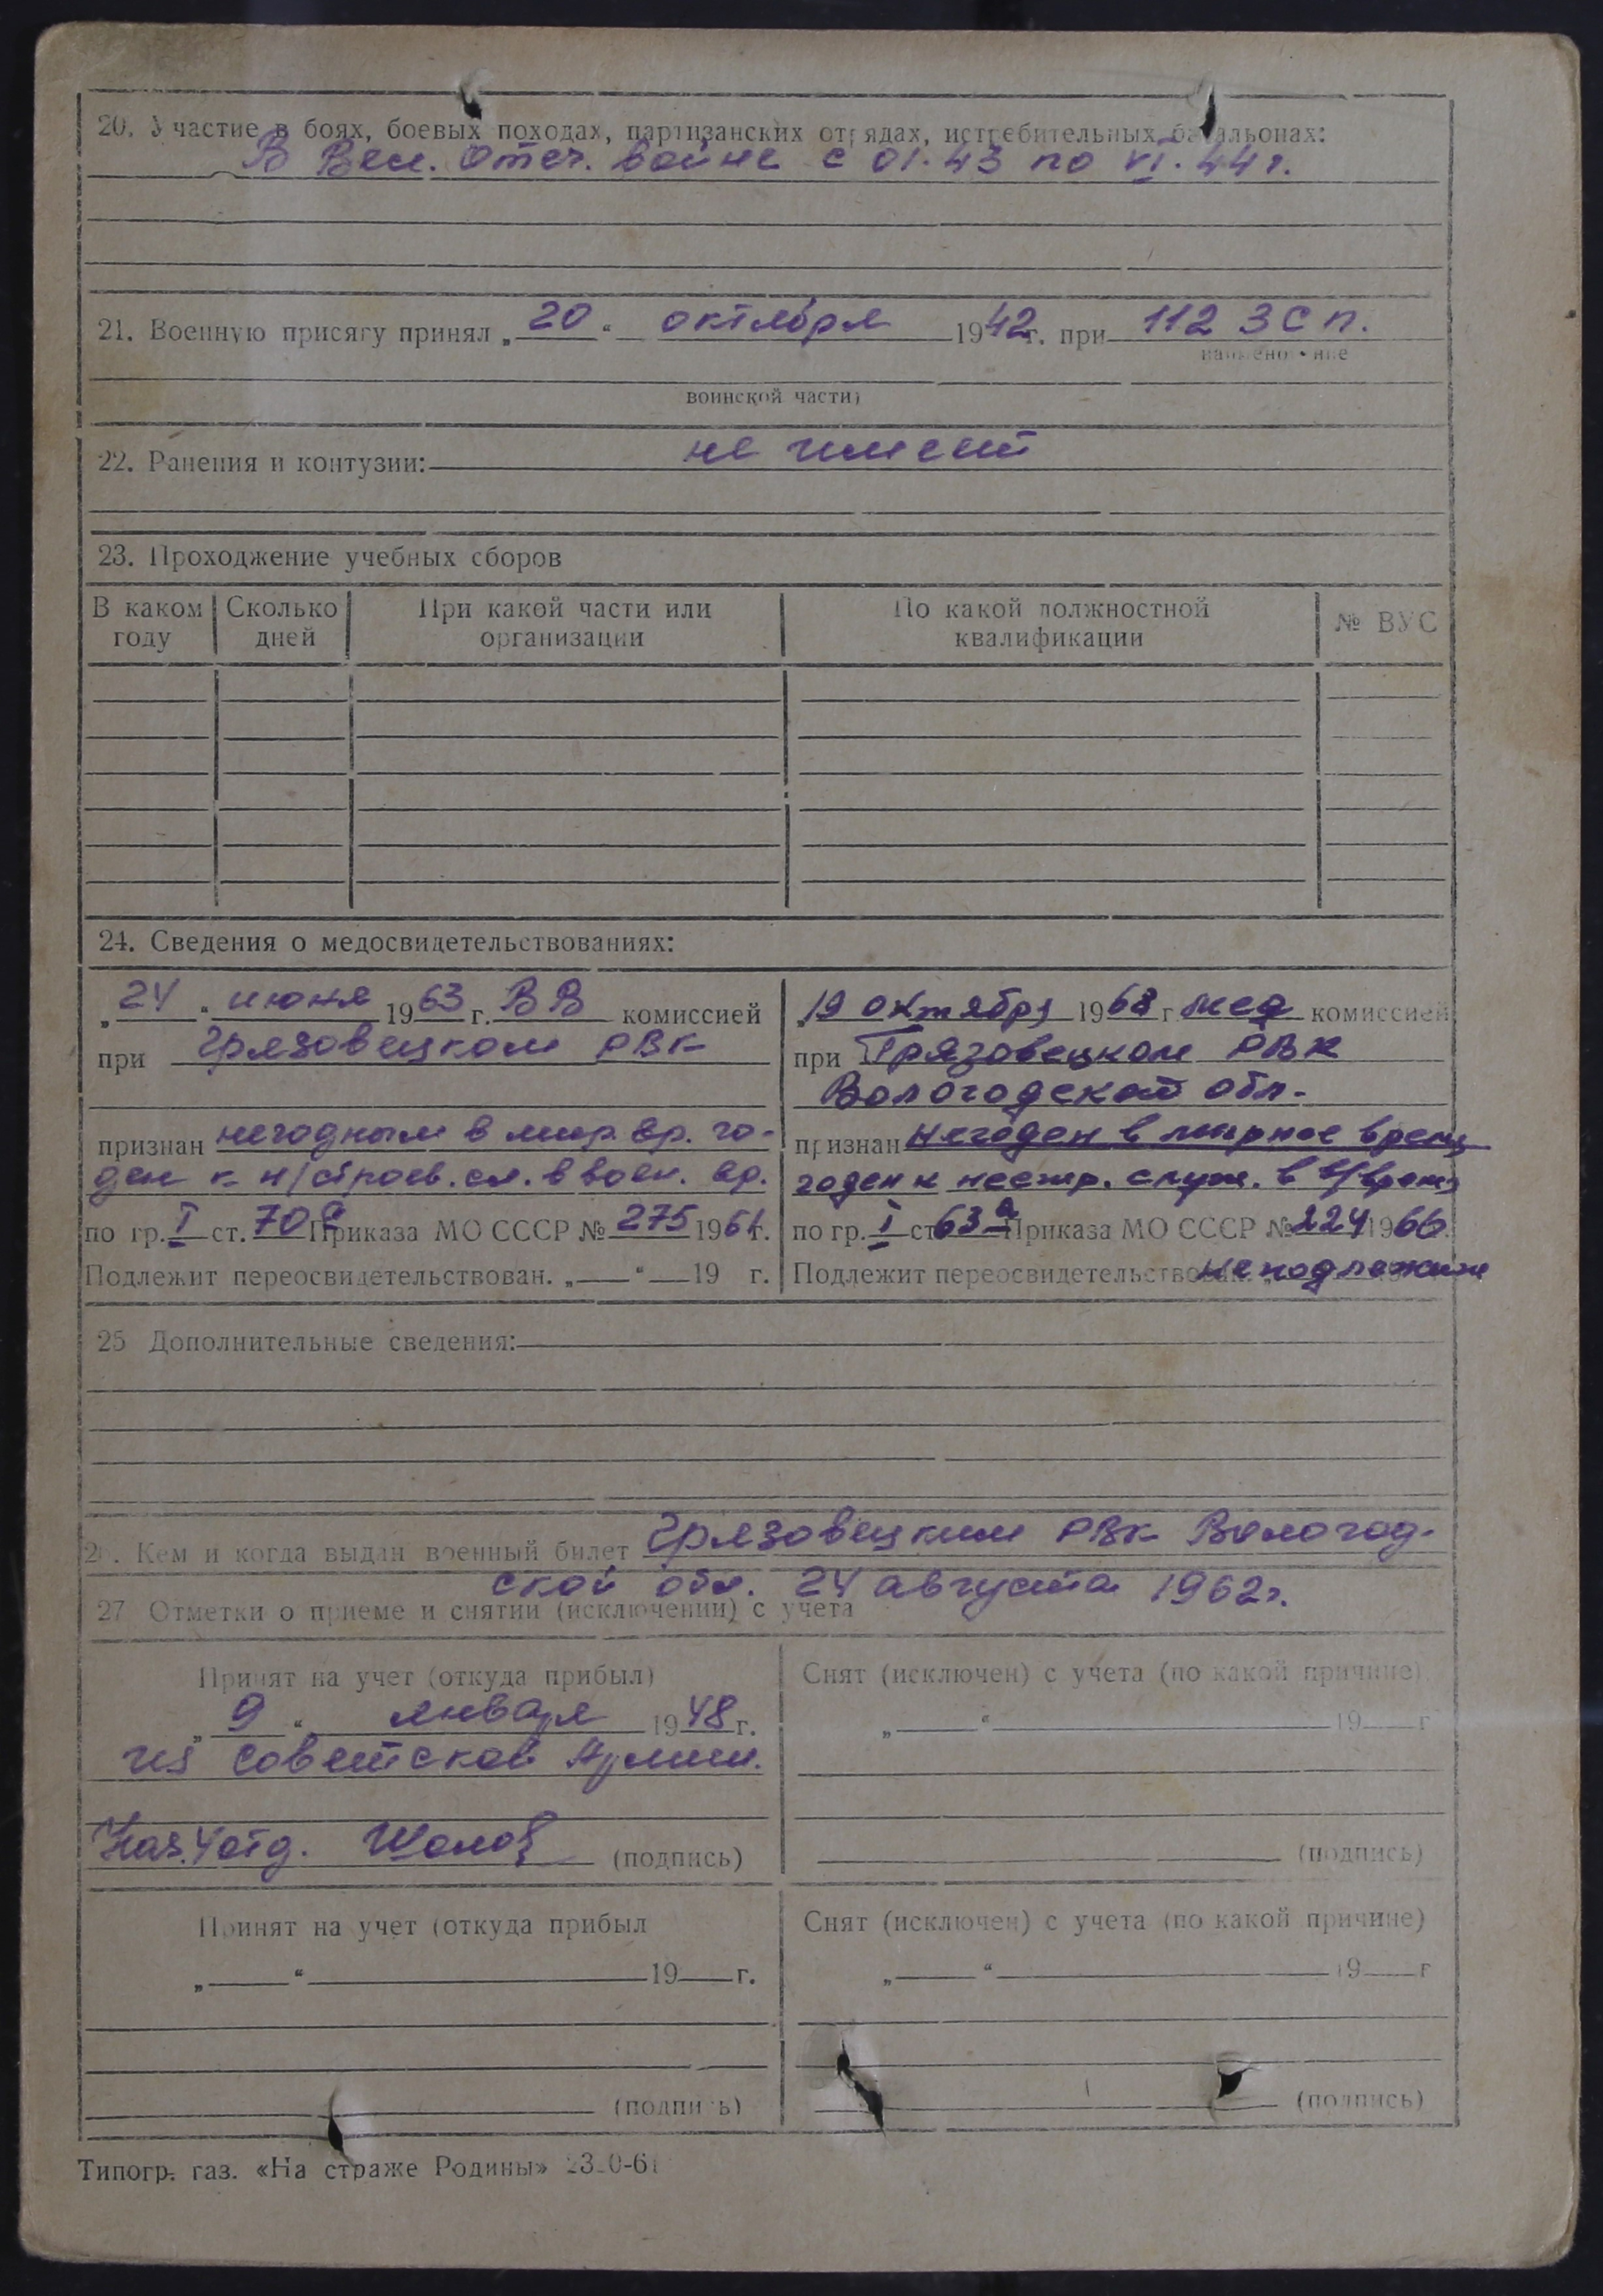 20. Участие в боях, боевых походах, партизанских отрядах, истребительных батальонах:
В Вел. Отеч. войне с 01.43 по VI.44 г.
21. Военную присягу принял „20“ октября 1942 г. при 112 ЗСП.
наименование
воинской части)
22. Ранения и контузии: не имеет
23. Прохождение учебных сборов
В каком году
Сколько дней
При какой части или организации
По какой должностной квалификации
№ ВУС
24. Сведения о медосвидетельствованиях:
„24“ июня 1963 г. ВВ комиссией
при Грязовецком РВК
признан негодным в мир. вр. го-
ден к н/строев. сл. в воен. вр.
по гр. I ст. 70а Приказа МО СССР № 275 1961 г.
Подлежит переосвидетельствован. „ “ 19 г.
„19 октября 1968 г. мед комиссией
при Грязовецком РВК
Вологодской обл.
признан негоден в мирное время
годен к нестр. служ. в в/время
по гр. I ст 63а Приказа МО СССР № 224 1966.
Подлежит переосвидетельствован. не подлежит
25 Дополнительные сведения:
26. Кем и когда выдан военный билет Грязовецким РВК Вологод-
ской обл. 24 августа 1962 г.
27 Отметки о приеме и снятии (исключении) с учета
Принят на учет (откуда прибыл)
„9“ января 1948 г.
из Советской Армии.
Нач. 4 отд. (подпись)
Снят (исключен) с учета (по какой причине)
„ “ 19 г
(подпись)
Принят на учет (откуда прибыл
„ “ 19 г.
(подпись)
Снят (исключен) с учета (по какой причине)
„ “ 19 г
(подпись)
Типогр. газ. «На страже Родины»